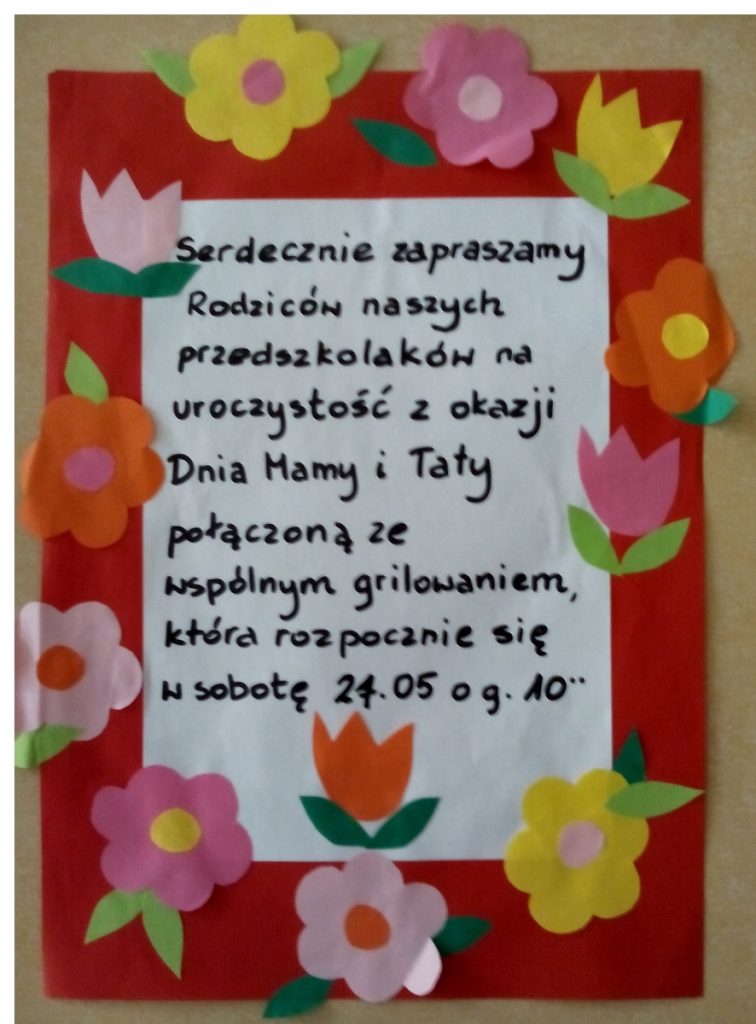 Serdecznie zapraszamy
Rodziców naszych
przedszkolaków na
uroczystość z okazji
Dnia Mamy i Taty
połączoną ze
wspólnym grilowaniem,
która rozpocznie się
w sobotę 24.05 o g. 10⁰⁰